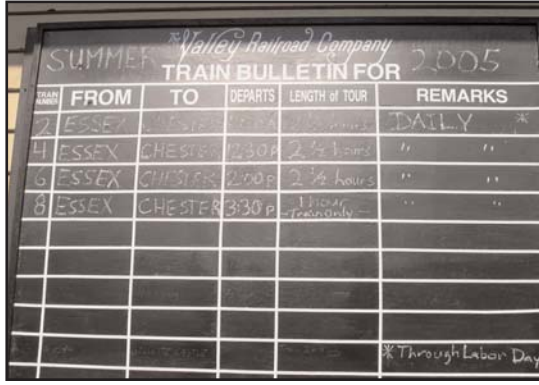 The Valley Railroad Company
SUMMER TRAIN BULLETIN FOR 2005
TRAIN NUMBER FROM TO DEPARTS LENGTH of TOUR REMARKS
2 ESSEX CHESTER hours DAILY *
4 ESSEX CHESTER 12:30P 2 ½ hours " "
6 ESSEX CHESTER 2:00P 2 ½ hours " "
8 ESSEX CHESTER 3:30P 1 hour -Train Only- " "
* Through Labor Day